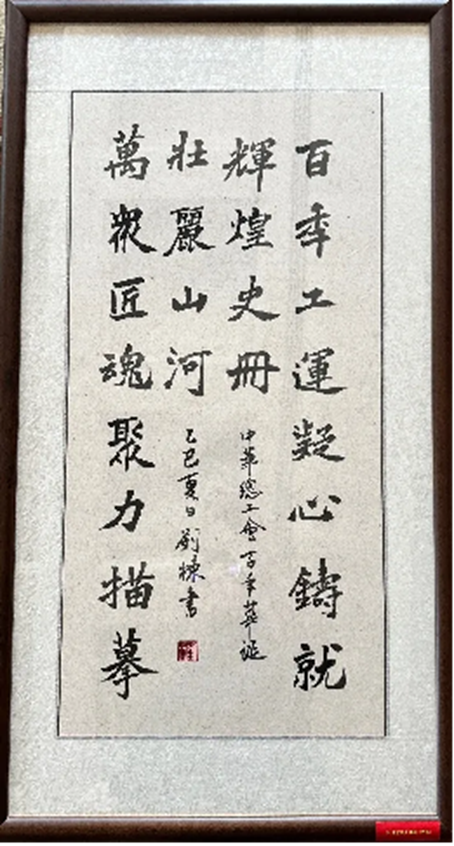 百年工運凝心鑄就
輝煌史冊
中華總工會百年華誕
萬衆匠魂聚力描摹
壯麗山河
乙巳夏日劉棟書